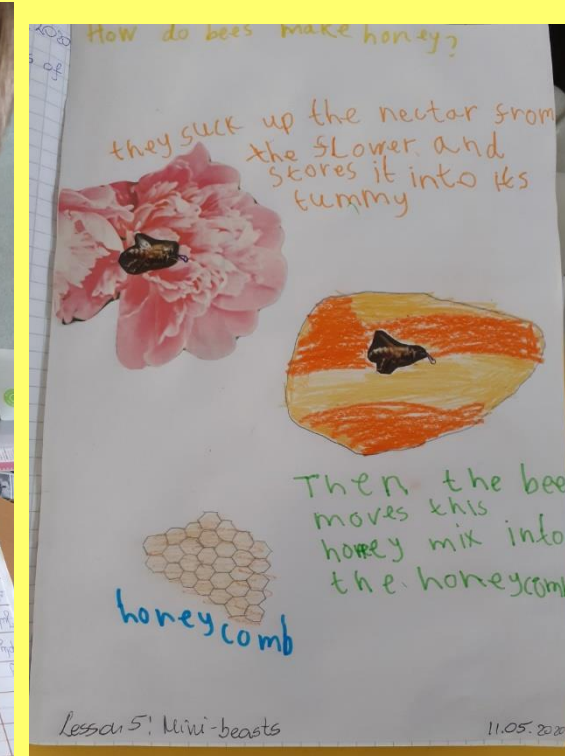 How do bees make honey?
they suck up the nectar from
the flower and
stores it into its
tummy
Then the bee
moves this
honey mix into
the honeycomb
honeycomb
Lesson 5: Mini-beasts
11.05.2020